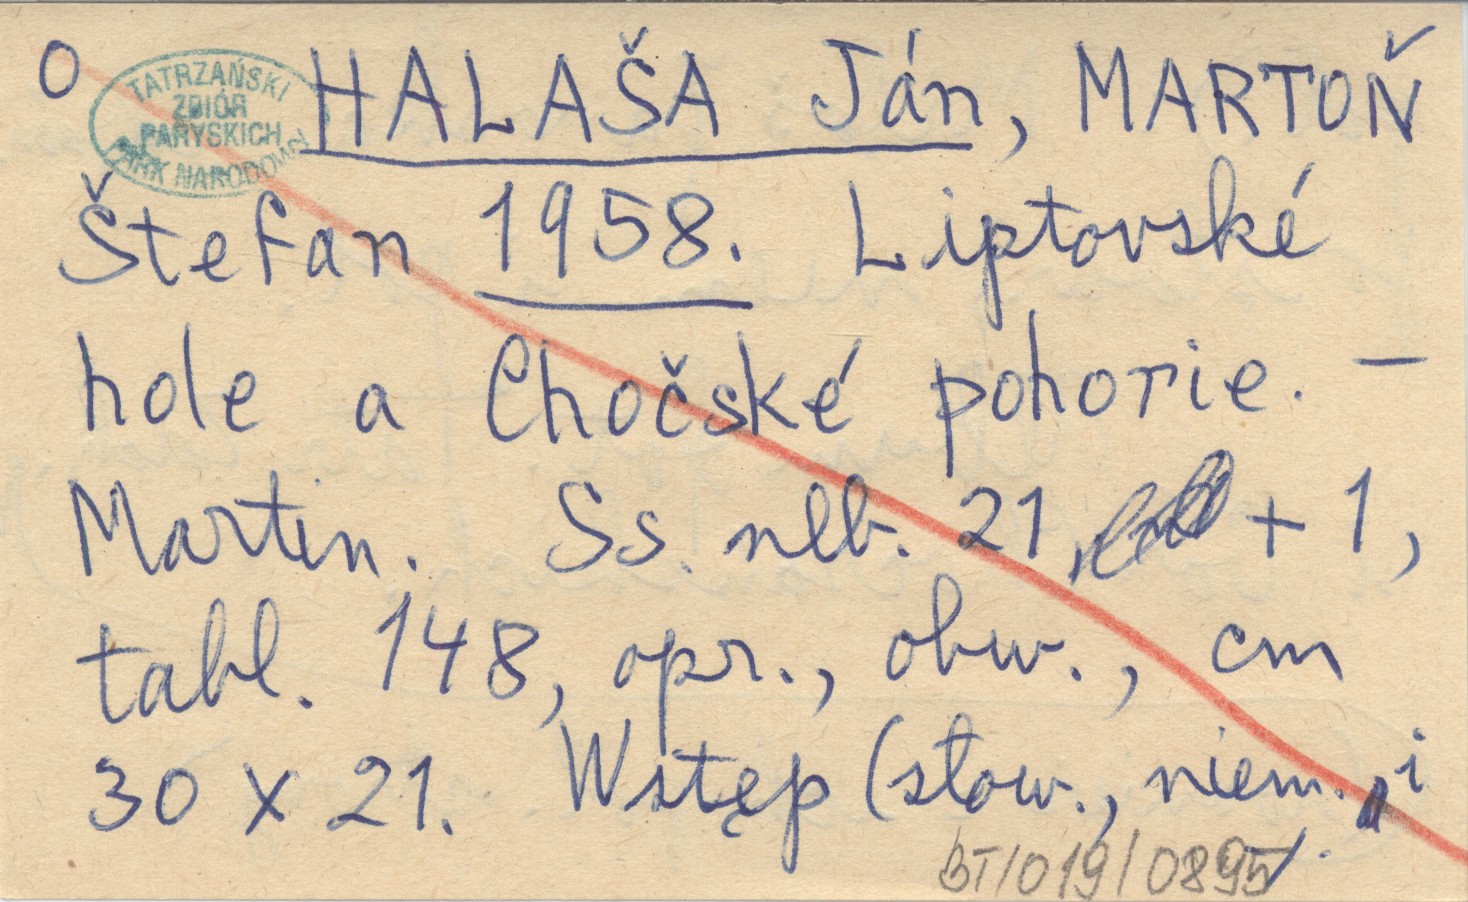 O
TATRZAŃSKI
ZBIÓR
PARYSKICH
PARK NARODOWY
HALAŠA Ján, MARTOŇ
Štefan 1958. Liptovské
hole a Chočské pohorie. –
Martin. Ss. nlb. 21, + 1,
tabl. 148, opr., obw., cm
30 x 21. Wstęp (słow., niem., i
BT/019/0895